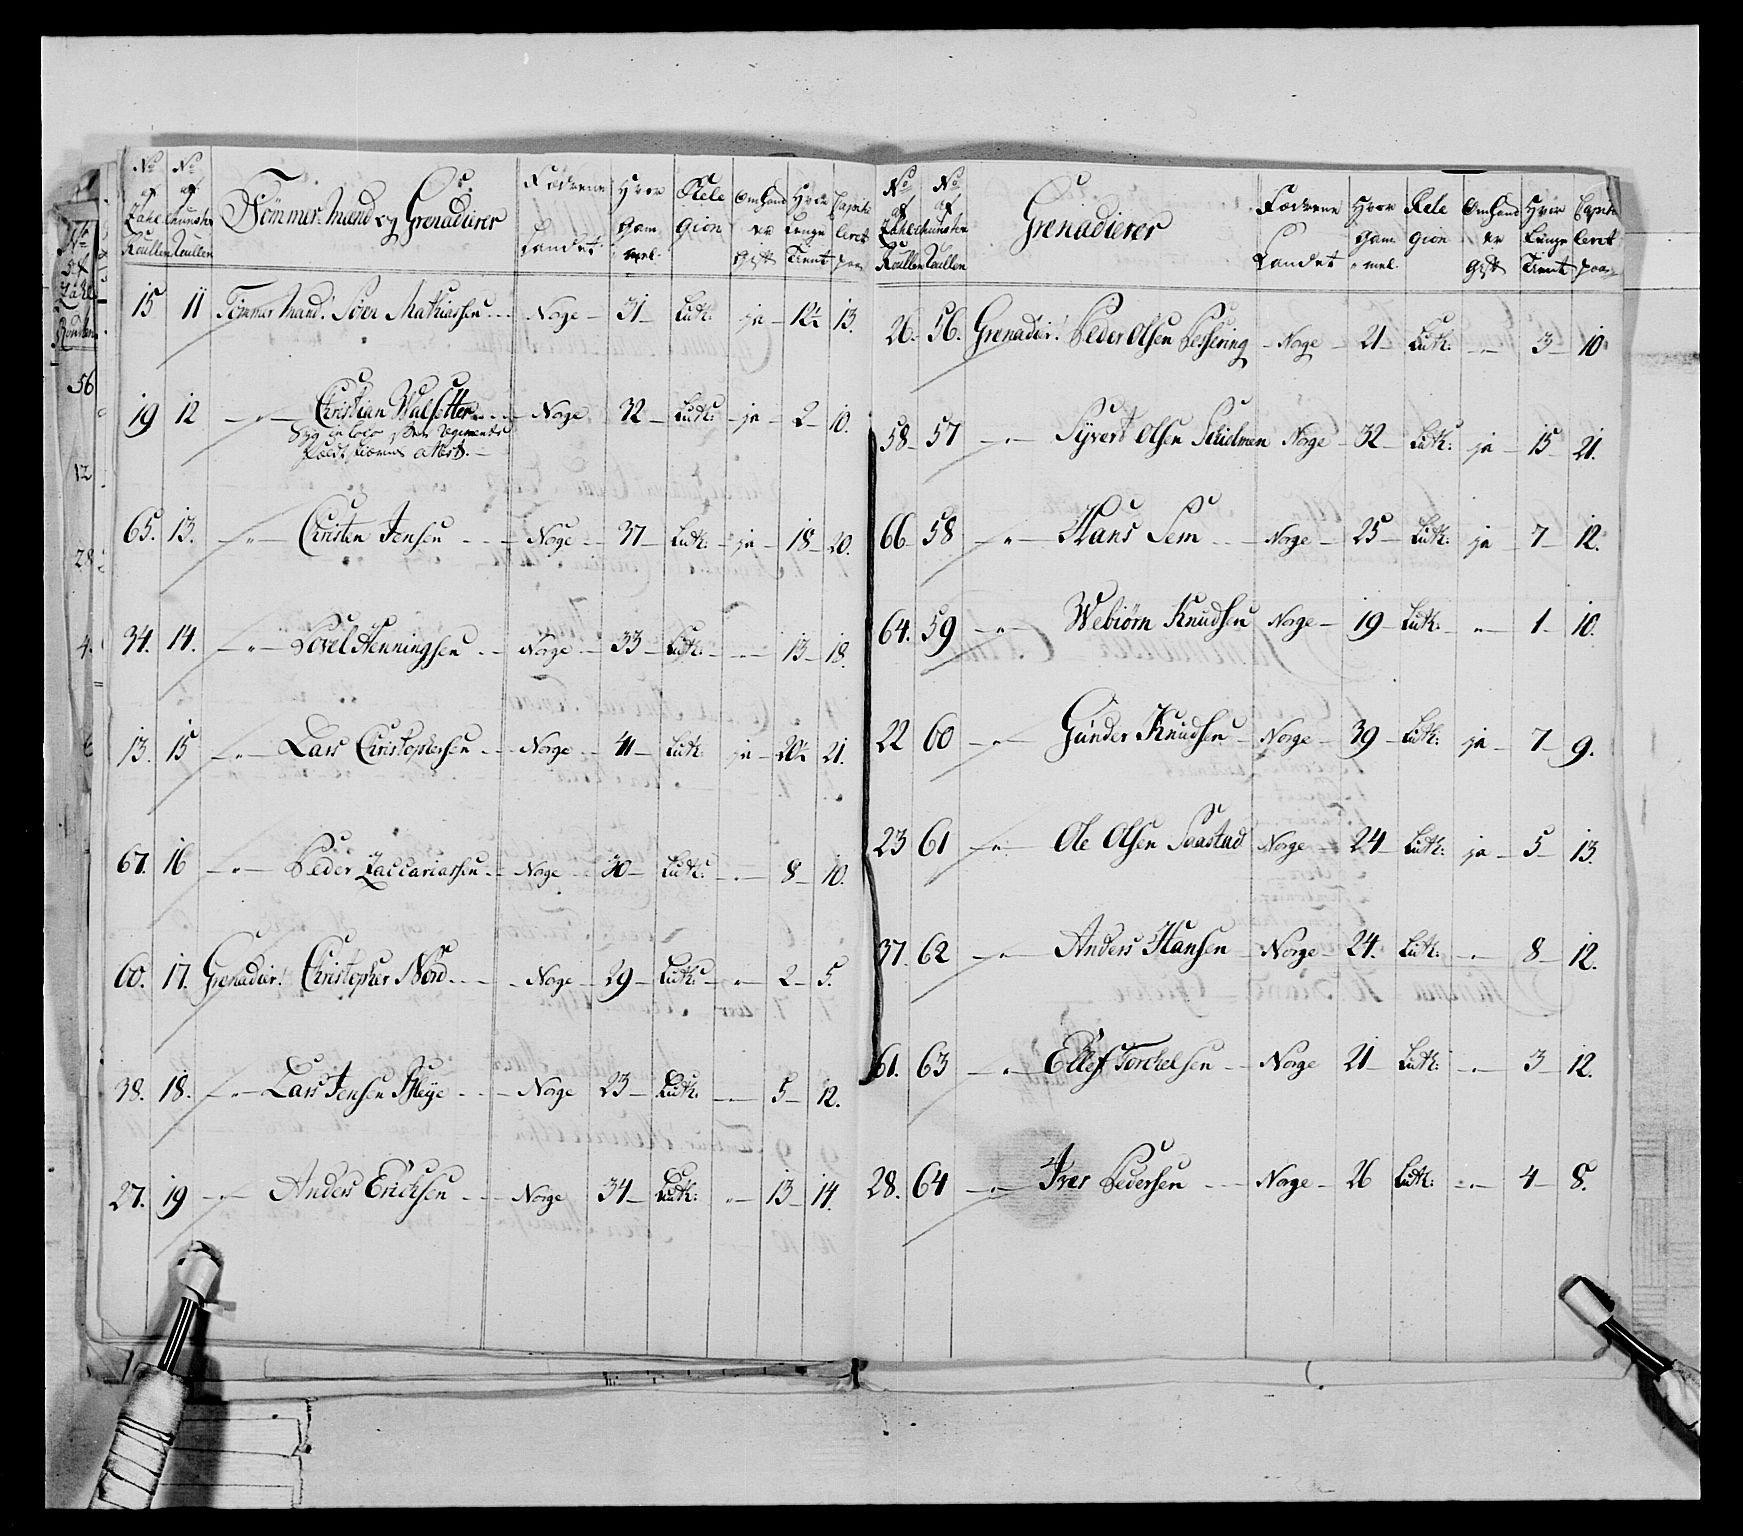 No af Zahl Roullen | No af Munster Roullen | Tømmer-Mænd og Grenadierer | Fædrene Landet | Hvor Gammel | Religion | Om Hand er Gift | Hvor Længe Tient | Capituleret paa
15 11 Tømmer Mand: Sören Mathiassen Norge 31 Luth: ja 12½ 13.
19 12 Christian Walsetter Norge 32 Luth: ja 2 10.
65. 13. Christen Jensen Norge 37 Luth: ja 18 20.
34. 14. Povel Henningsen Norge 33 Luth: 13 18.
13. 15 Lars Christophersen Norge 41 Luth ja 20½ 21.
67. 16 Peder Zaccariassen Norge 30 Luth: 8 10.
60. 17. Grenadier: Christopher Nord Norge 29 Luth: 2 5.
38. 18. Lars Jensen Norge 23 Luth: 5 12.
27. 19 Anders Erichsen Norge 34 Luth: 13 14.
No af Zahl Roullen | No af Munster Roullen | Grenadierer | Fædrene Landet | Hvor Gammel | Religion | Om Hand er Gift | Hvor Længe Tient | Capituleret paa
26. 56. Grenadier: Peder Olsen Norge 21 Luth: 3 10
58 57 Syvert Olsen Norge 32 Luth: ja 15 21.
66 58 Hans Sem Norge 25 Luth: ja 7 12.
64. 59 Webiörn Knudsen Norge 19 Luth: 1 10.
22 60 Gunder Knudsen Norge 39 Luth: ja 7 9.
23 61 Ole Olsen Norge 24 Luth: ja 5 13.
37. 62 Anders Hansen Norge 24. Luth: 8 12.
61. 63 Ellef Torchelsen Norge 21 Luth: 3 12.
28. 64 Iver Pedersen Norge 26 Luth: 4 8.